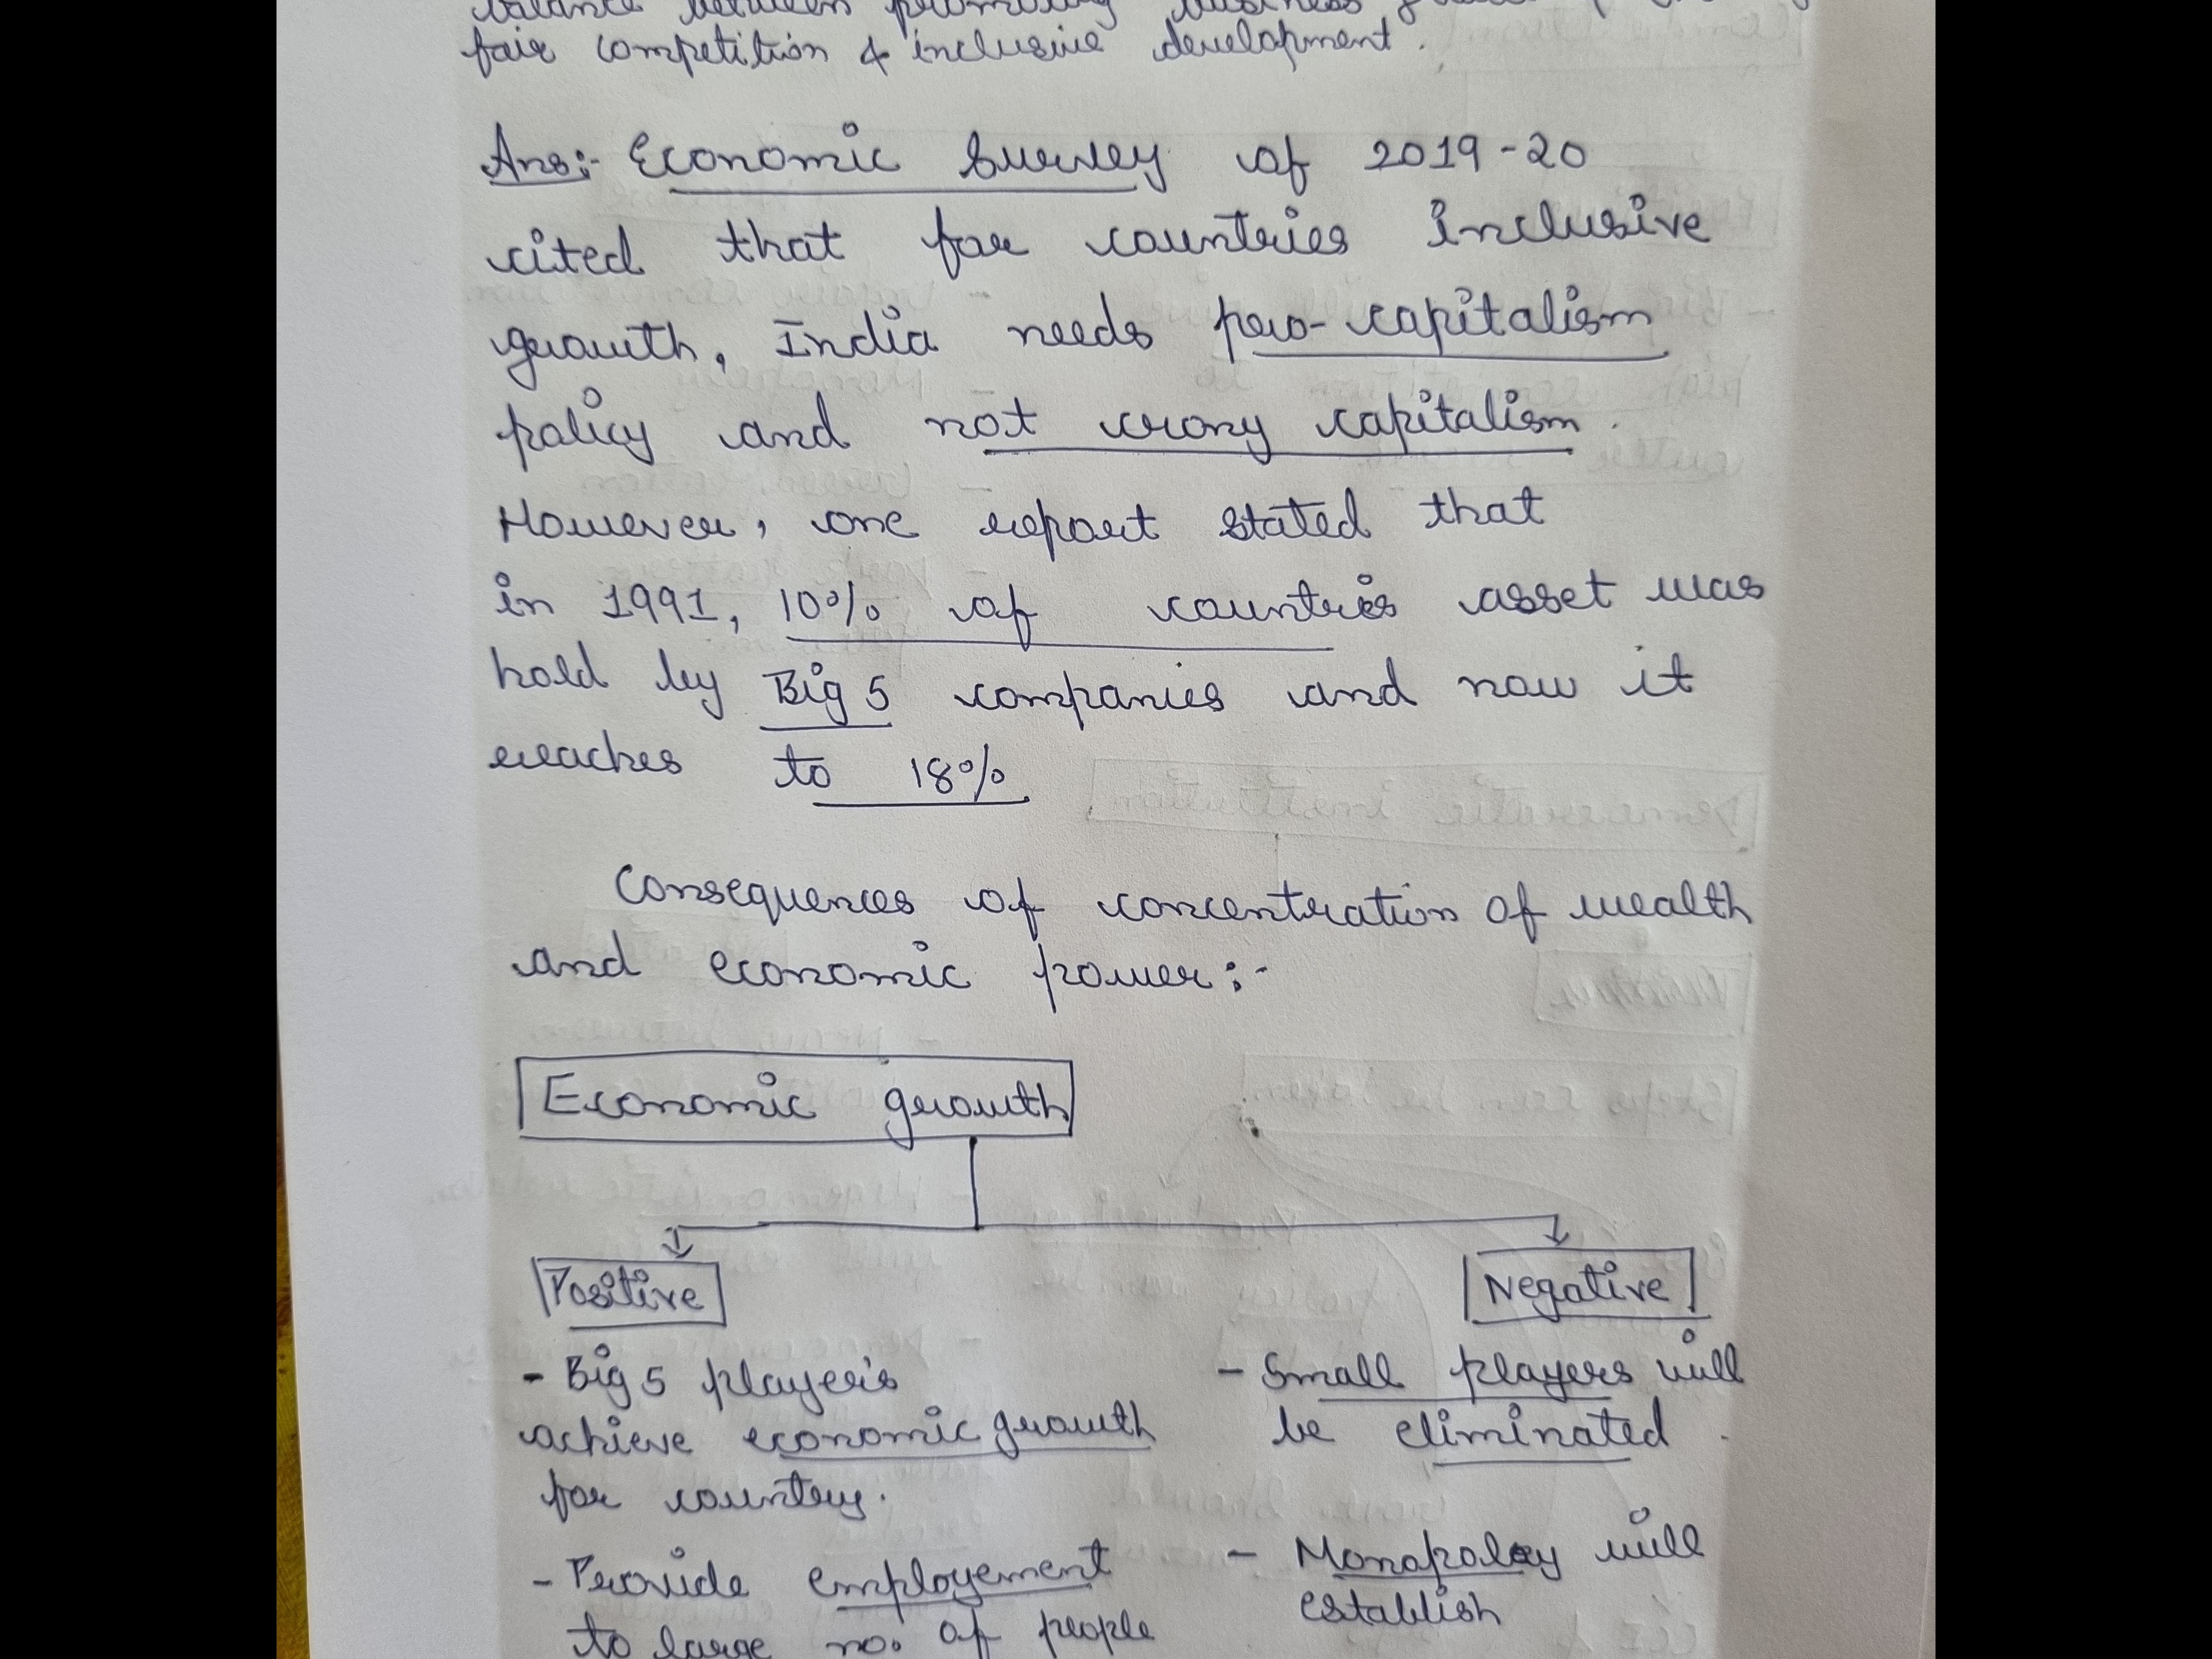 balance between promoting business
fair competition & inclusive development.
Ans:- Economic Survey of 2019-20
cited that for countries inclusive
growth, India needs pro-capitalism
policy and not crony capitalism.
However, one report stated that
in 1991, 10% of countries asset was
hold by Big 5 companies and now it
reaches to 18%
Consequences of concentration of wealth
and economic power:-
Economic growth
Positive
- Big 5 player's
achieve economic growth
for country.
- Provide employement
to large no. of people
Negative
- Small players will
be eliminated.
- Monopoloy will
establish